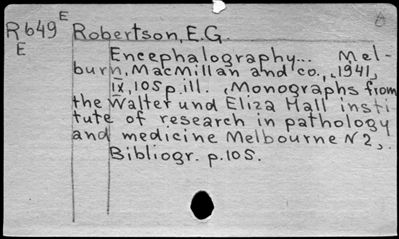 R649 E Robertson, E.G.
E
Encephalography... Mel-
burn, MacMillan and co., 1941,
IX, 105 p. ill. (Monographs from
the Walter und Eliza Hall insti-
tute of research in pathology
and medicine Melbourne N 2,.
Bibliogr. p. 105.